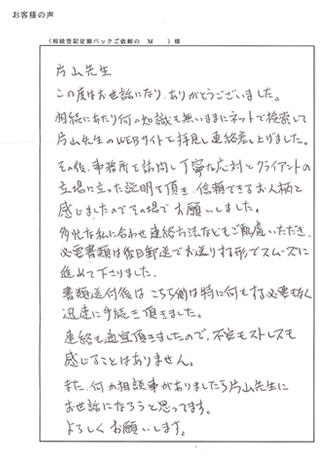 お客様の声
（相続登記定額パックご依頼の　M　　）様
片山先生
この度はお世話になり、ありがとうございました。
相続にあたり何の知識も無いままにネットで検索して
片山先生のWEBサイトを拝見し連絡差し上げました。
その後、事務所を訪問し丁寧な応対とクライアントの
立場に立った説明を頂き、信頼できるお人柄と
感じましたのでその場でお願いしました。
多忙な私に合わせ連絡方法などもご配慮いただき、
必要書類は後日郵送でお送りする形でスムーズに
進めて下さりました。
書類送付後はこちら側は特に何もする必要もなく
迅速に手続き頂きました。
連絡も適宜頂きましたので、不安もストレスも
感じることはありません。
また、何か相談事がありましたら片山先生に
お世話になろうと思ってます。
よろしくお願いします。